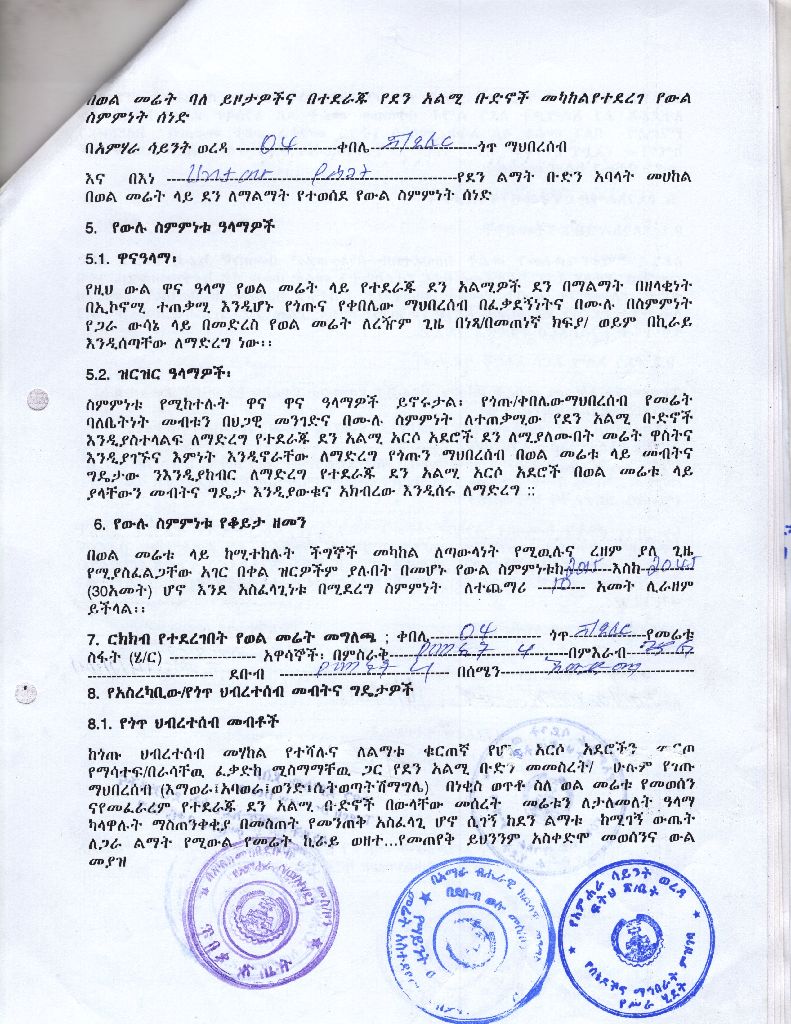 በወል መሬት ባለ ይዞታዎችና በተደራጁ የደን አልሚ ቡድኖች መካከልየተደረገ የውል
ስምምነት ሰነድ
በአምሃራ ሳይንት ወረዳ ----- 04 -----ቀበሌ----- -----ጎጥ ማህበረሰብ
እና በእነ ----- -----የደን ልማት ቡድን አባላት መሀከል
በወል መሬት ላይ ደን ለማልማት የተወሰደ የውል ስምምነት ሰነድ
5. የውሉ ስምምነቱ ዓላማዎች
5.1. ዋናዓላማ፡
የዚህ ውል ዋና ዓላማ የወል መሬት ላይ የተደራጁ ደን አልሚዎች ደን በማልማት በዘላቂነት
በኢኮኖሚ ተጠቃሚ እንዲሆኑ የጎጡና የቀበሌው ማህበረሰብ በፈቃደኝነትና በሙሉ በስምምነት
የጋራ ውሳኔ ላይ በመድረስ የወል መሬት ለረዥም ጊዜ በነጻ/በመጠነኛ ክፍያ/ ወይም በኪራይ
እንዲሰጣቸው ለማድረግ ነው፡፡
5.2. ዝርዝር ዓላማዎች፡
ስምምነቱ የሚከተሉት ዋና ዋና ዓላማዎች ይኖሩታል፡ የጎጡ/ቀበሌውማህበረሰብ የመሬት
ባለቤትነት መብቱን በህጋዊ መንገድና በሙሉ ስምምነት ለተጠቃሚው የደን አልሚ ቡድኖች
እንዲያስተላልፍ ለማድረግ የተደራጁ ደን አልሚ አርሶ አደሮች ደን ለሚያለሙበት መሬት ዋስትና
እንዲያገኙና እምነት እንዲኖራቸው ለማድረግ የጎጡን ማህበረሰብ በወል መሬቱ ላይ መብትና
ግዴታው ንእንዲያከብር ለማድረግ የተደራጁ ደን አልሚ አርሶ አደሮች በወል መሬቱ ላይ
ያላቸውን መብትና ግዴታ እንዲያውቁና አክብረው እንዲሰሩ ለማድረግ ።
6. የውሉ ስምምነቱ የቆይታ ዘመን
በወል መሬቱ ላይ ከሚተከሉት ችግኞች መካከል ለጣውላነት የሚዉሉና ረዘም ያለ ጊዜ
የሚያስፈልጋቸው አገር በቀል ዝርዎችም ያሉበት በመሆኑ የውል ስምምነቱከ-2015---እስከ-2045
(30አመት) ሆኖ እንደ አስፈላጊነቱ በሚደረግ ስምምነት ለተጨማሪ --10-- አመት ሊራዘም
ይችላል፡፡
7. ርክክብ የተደረገበት የወል መሬት መግለጫ ; ቀበሌ----- 04 ----- ጎጥ -----የመሬቱ
ስፋት (ሄ/ር) ----- አዋሳኞች፡ በምስራቅ----- -----በምእራብ-----
----- ደቡብ ----- ----- በሰሜን-----
8. የአስረካቢው/የጎጥ ህብረተሰብ መብትና ግዴታዎች
8.1. የጎጥ ህብረተሰብ መብቶች
ከጎጡ ህብረተሰብ መሃከል የተሻሉና ለልማቱ ቁርጠኛ የሆኑ አርሶ አደሮችን
የማሳተፍ/በራሳቸዉ ፈቃድከ ሚስማማቸዉ ጋር የደን አልሚ ቡድን መመስረት/ ሁሉም የጎጡ
ማህበረሰብ (እማወራ፤አባወራ፤ወንድ፤ሴትወጣትሽማግሌ) በነቂስ ወጥቶ ስለ ወል መሬቱ የመወሰን
ናየመፈራረም የተደራጁ ደን አልሚ ቡድኖች በውላቸው መሰረት መሬቱን ለታለመለት ዓላማ
ካላዋሉት ማስጠንቀቂያ በመስጠት የመንጠቅ አስፈላጊ ሆኖ ሲገኝ ከደን ልማቱ ከሚገኝ ውጤት
ለጋራ ልማት የሚውል የመሬት ኪራይ ወዘተ...የመጠየቅ ይህንንም አስቀድሞ መወሰንና ውል
መያዝ
የአምሐራ ሳይንት ወረዳ
ፍትህ ጽ/ቤት
የሰነዶችና ማኅበራት ምዝገባ
የሥራ ሂደት